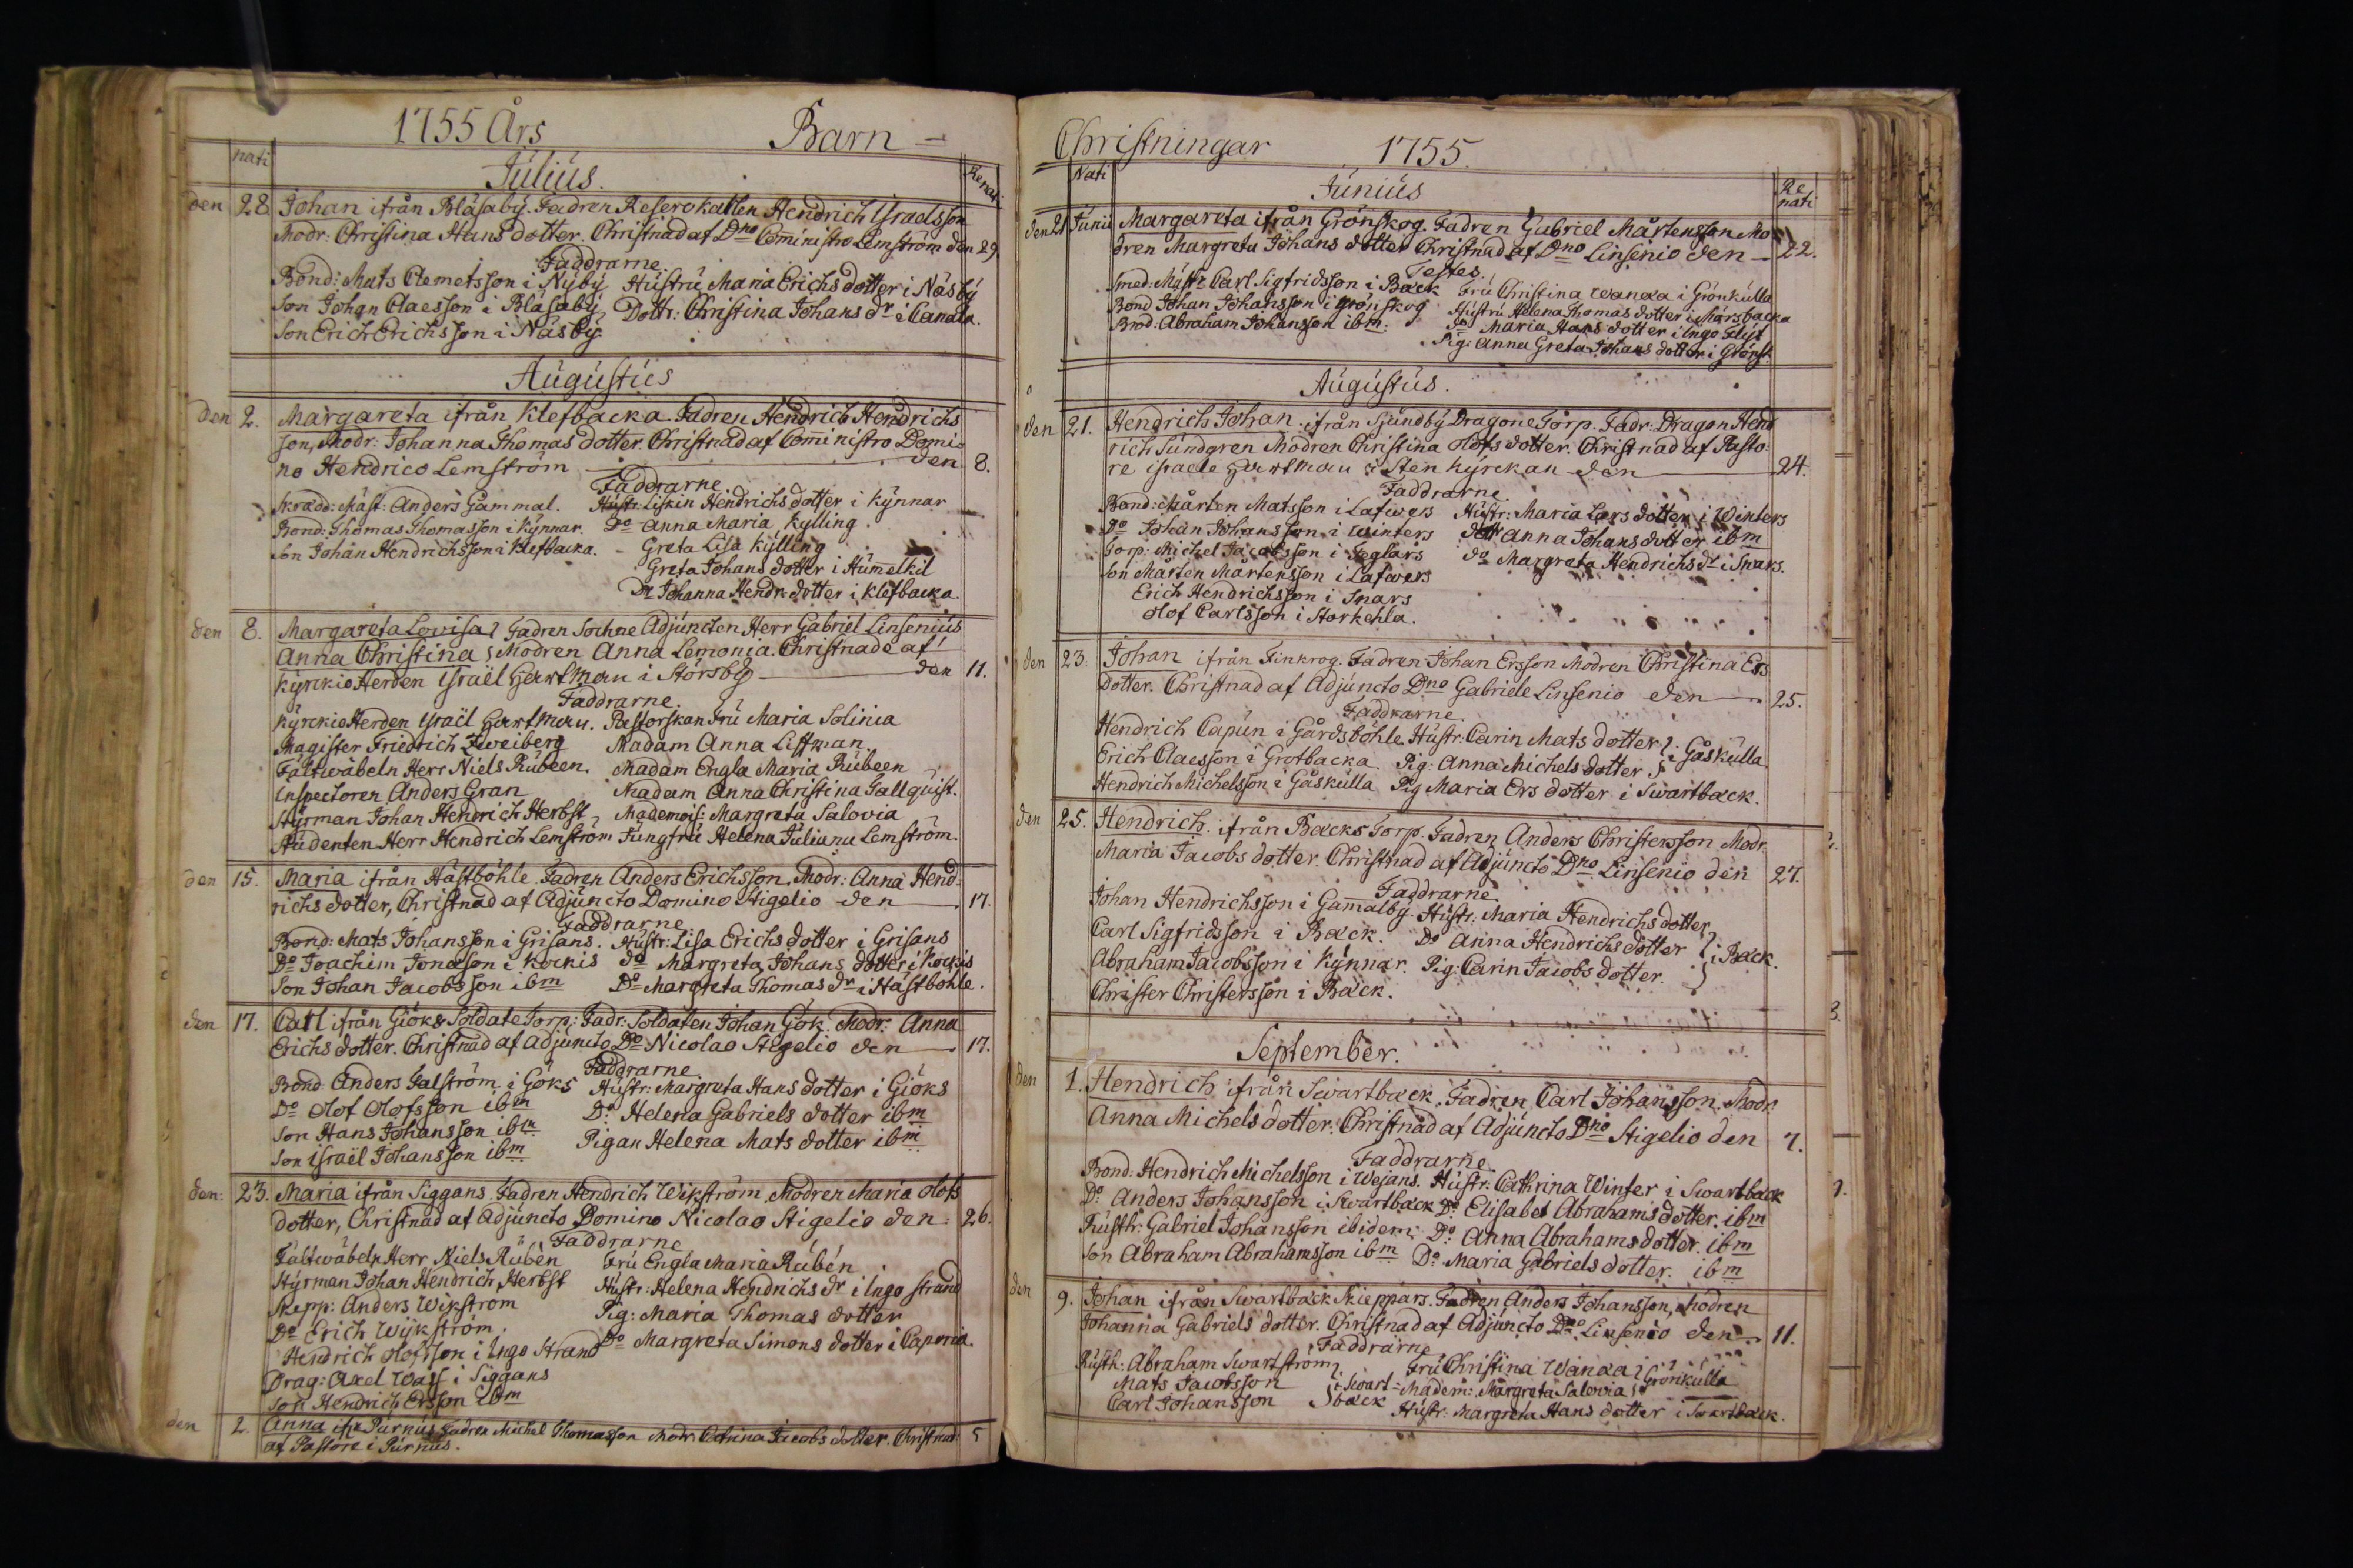 1755 Års Barn -
nati
Renati
Julius.
den 28 Johan ifrån Bläsaby. Fadren Reserekallen Hendrich Israelsson
Modr: Christina Hans dotter. Christnad af Dno Comministro Lemström den 29.
Faddrarne
Bond: Mats Clemetsson i Nyby Hustru Maria Erichs dotter i Näsby
Son Johan Claesson i Bläsaby Dottr: Christina Johans dr i Canala.
Son Erich Erichsson i Näsby.
Augustus
den 2. Margareta ifrån Klefbacka Fadren Hendrich Hendrichs
son, Modr: Johanna Thomas dotter. Christnad af Comministro Domi-
no Hendrico Lemström den 8.
Faddrarne
Skrädd: Mäst: Anders Gammal. Hustr: Liskin Hendrichs dotter i Kynnar
Bond: Thomas Thomasson i Kynnar. Do Anna Maria Kylling.
Son Johan Hendrichsson i Klefbacka. - Greta Lisa Kylling
Greta Johans dotter i Humelkil
Dr Johanna Hendr: dotter i Klefbacka.
den 8. Margareta Lovisa } Fadren Sochne Adjuncten Herr Gabriel Linsenius
Anna Christina } Modren Anna Lemonia. Christnade af
Kyrckio Herden Israël Hartman i Störsby den 11.
Faddrarne
Kyrckio Herden Israël Hartman. Pastorskan Fru Maria Solinia
Magister Friedrich Zweiberg Madam Anna Liffman.
Fältwäbeln Herr Niels Rubeen. Madam Engla Maria Rubeen
Inspectoren Anders Gran Madam Anna Christina Tallquist.
Styrman Johan Hendrich Herbst Mademois: Margreta Salovia
Studenten Herr Hendrich Lemström Jungfru Helena Juliana Lemström.
den 15. Maria ifrån Hästböhle. Fadren Anders Erichsson, Modr: Anna Hend-
richs dotter, Christnad af Adjuncto Domino Stigelio den 17.
Faddrarne
Bond: Mats Johansson i Grisans. Hustr: Lisa Erichs dotter i Grisans
Do Joachim Jonasson i Kockis do Margreta Johans dotter i Kockis
Son Johan Jacobsson ibm Do Margreta Thomas dr i Hästböhle.
den 17. Carl ifrån Giöks Soldate Torp: Fadr: Soldaten Johan Gök. Modr: Anna
Erichs dotter. Christnad af adjuncto Do Nicolao Stigelio den 17.
Faddrarne
Bond Anders Falström i Göks Hustr: Margreta Hans dotter i Giöks
Do Olof Olofsson ibm Do Helena Gabriels dotter ibm
Son Hans Johansson ibm Pigan Helena Mats dotter ibm
Son Israël Johansson ibm
den: 23. Maria ifrån Siggans. Fadren Hendrich Wikström, Modren Maria Olofs
dotter, Christnad af Adjuncto Domino Nicolao Stigelio den. 26.
Faddrarne
Fältwäbeln Herr Niels Rubén Fru Engla Maria Rubén
Styrman Johan Hendrich Herbst Hustr: Helena Hendrichs dr i Ingo strand
Skepp: Anders Wikström Pig: Maria Thomas dotter
Do Erich Wijkström. Do Margreta Simons dotter i Caporia.
Hendrich Olofsson i Ingo Strand
Drag: Axel Wass i Siggans
Son Hendrich Ersson ibm
den 2. Anna ifr Purnus Fadren Michel Thomasson Modr: Catrina Jacobs dotter. Christnad 5
af Pastore i Purnus.
Christningar 1755.
Nati
Renati
Junius
den 21 Junii Margareta ifrån Grönskog. Fadren Gabriel Mårtensson Mo-
dren Margreta Johans dotter Christnad af Dno Linsenio den 22.
Testes.
Smed: Mystr Carl Sigfridsson i Back Fru Christina Wanaa i Grönkulla
Bond Johan Johansson i grönskog Hustru Helena Thomas dotter i Mårsbacka
Brod: Abraham Johansson ibm. Do Maria Hans dotter i Ingo Flyt
Pig: Anna Greta Johans dotter i Grönsk.
Augustus.
den 21. Hendrich Johan ifrån Sjundby Dragone Torp. Fadr: Dragon Hend
rich Sundgren Modren Christina Olofs dotter. Christnad af Pasto-
re Israele Hartman i Sten Kyrckan den 24.
Faddrarne
Bond: Mårten Matsson i Lafwers Hustr: Maria Lars dotter i Winters
Do Johan Johansson i Winters dottr Anna Johans dotter ibm
Torp: Michel Jacobsson i Teglars do Margreta Hendrichs dr i Snars.
Son Mårten Mårtensson i Lafwers
Erich Hendrichsson i Snars
Olof Carlsson i Storkehla.
den 23. Johan ifrån Finkrog. Fadren Johan Ersson Modren Christina Ers
dotter. Christnad af Adjuncto Dno Gabriele Linsenio den 25.
Faddrarne
Hendrich Capun i Gårdsböhle. Hustr: Carin Mats dotter } i Gåskulla
Erich Claesson i Grotbacka Pig: Anna Michels dotter }
Hendrich Michelsson i Gåskulla Pig Maria Ers dotter i Swartback.
den 25. Hendrich ifrån Backs Torp. Fadren Anders Christersson Modr:
Maria Jacobs dotter. Christnad af Adjuncto Dno. Linsenio den 27.
Faddrarne
Johan Hendrichsson i Gammalby. Hustr: Maria Hendrichs dotter }
Carl Sigfridsson i Back. Do Anna Hendrichs dotter } i Back.
Abraham Jacobsson i Kynnar. Pig: Carin Jacobs dotter. }
Christer Christersson i Back.
September.
den 1. Hendrich ifrån Swartback. Fadren Carl Johansson. Modr:
Anna Michels dotter. Christnad af Adjuncto Dno Stigelio den 7.
Faddrarne
Bond: Hendrich Michelsson i Wejans. Hustr: Cathrina Winter i Swartback
Do Anders Johansson i Swartback Do Elisabet Abrahams dotter. ibm
Rusth: Gabriel Johansson ibidem. Do Anna Abrahams dotter. ibm
Son Abraham Abrahamsson ibm Do Maria Gabriels dotter. ibm
den 9. Johan ifrån Swartback Skieppars. Fadren Anders Johansson, Modren
Johanna Gabriels dotter. Christnad af Adjuncto Dno. Linsenio den 11.
Faddrarne
Rusth: Abraham Swartström } Fru Christina Wanaa } i Grönkulla
Mats Jacobsson } i Swart- Madem: Margreta Salovia }
Carl Johansson } back Hustr: Margreta Hans dotter i Swartback.